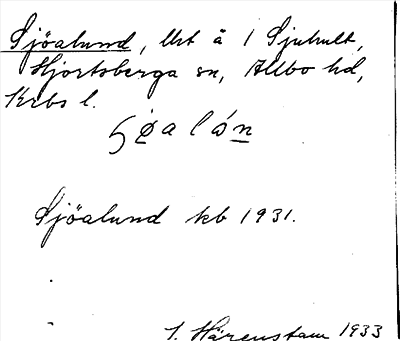 Sjöalund, lht å 1 Sjuhult,
Hjortsberga sn, Allbo hd,
Krbs l.
Sjöalund kb 1931.
I. Härenstam 1933